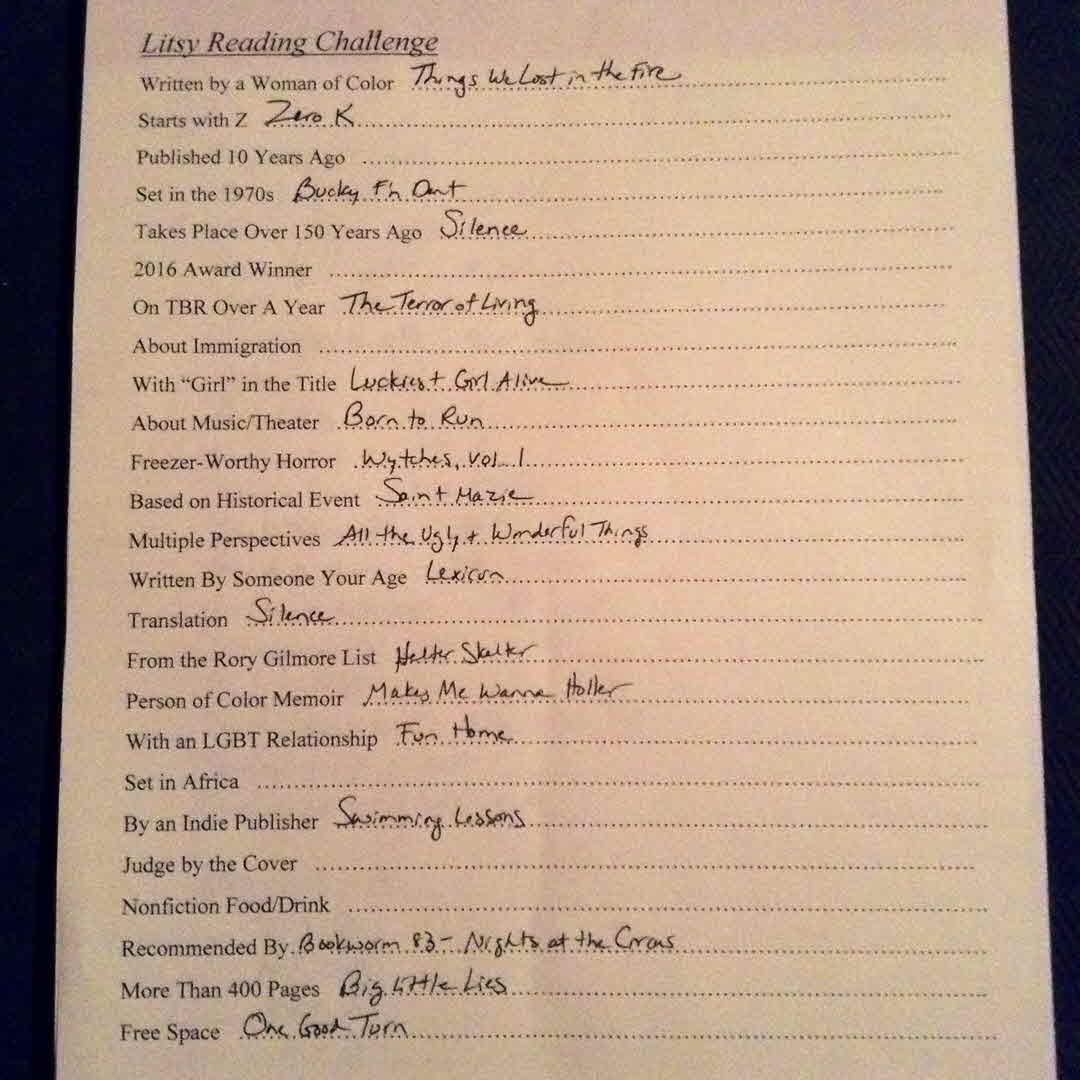 Litsy Reading Challenge
Written by a Woman of Color Things We Lost in the Fire
Starts with Z Zero K
Published 10 Years Ago
Set in the 1970s Bucky F*n Dent
Takes Place Over 150 Years Ago Silence
2016 Award Winner
On TBR Over A Year The Terror of Living
About Immigration
With “Girl” in the Title Luckiest Girl Alive
About Music/Theater Born to Run
Freezer-Worthy Horror Wytches, vol. 1
Based on Historical Event Saint Mazie
Multiple Perspectives All the Ugly + Wonderful Things
Written By Someone Your Age Lexicon
Translation Silence
From the Rory Gilmore List Helter Skelter
Person of Color Memoir Makes Me Wanna Holler
With an LGBT Relationship Fun Home
Set in Africa
By an Indie Publisher Swimming Lessons
Judge by the Cover
Nonfiction Food/Drink
Recommended By Bookworm 83 - Nights at the Circus
More Than 400 Pages Big Little Lies
Free Space One Good Turn